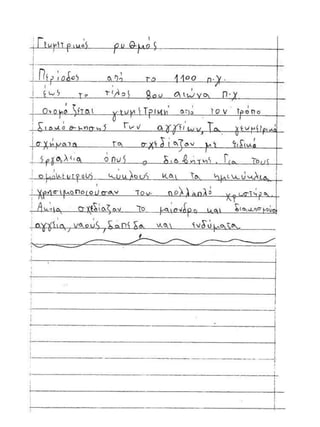 Γεωμετρικός ρυθμός
Περίοδος από το 1100 π.χ.
έως το τέλος 8ου αιώνα π.χ
Ονομάζεται γεωμετρική από τον τρόπο
διακόσμησης των αγγείων, Τα γεωμετρικά
σχήματα τα σχεδίαζαν με ειδικά
εργαλεία όπως ο διαβήτης. Για τους
ομόκεντρους κύκλους και τα ημικύκλια
χρησιμοποιούσαν τον πολλαπλό χρωστήρα.
Ακόμα σχεδίαζαν το μαίανδρο και διακοσμούσαν
αγγεία, ναούς, δάπεδα και ενδύματα